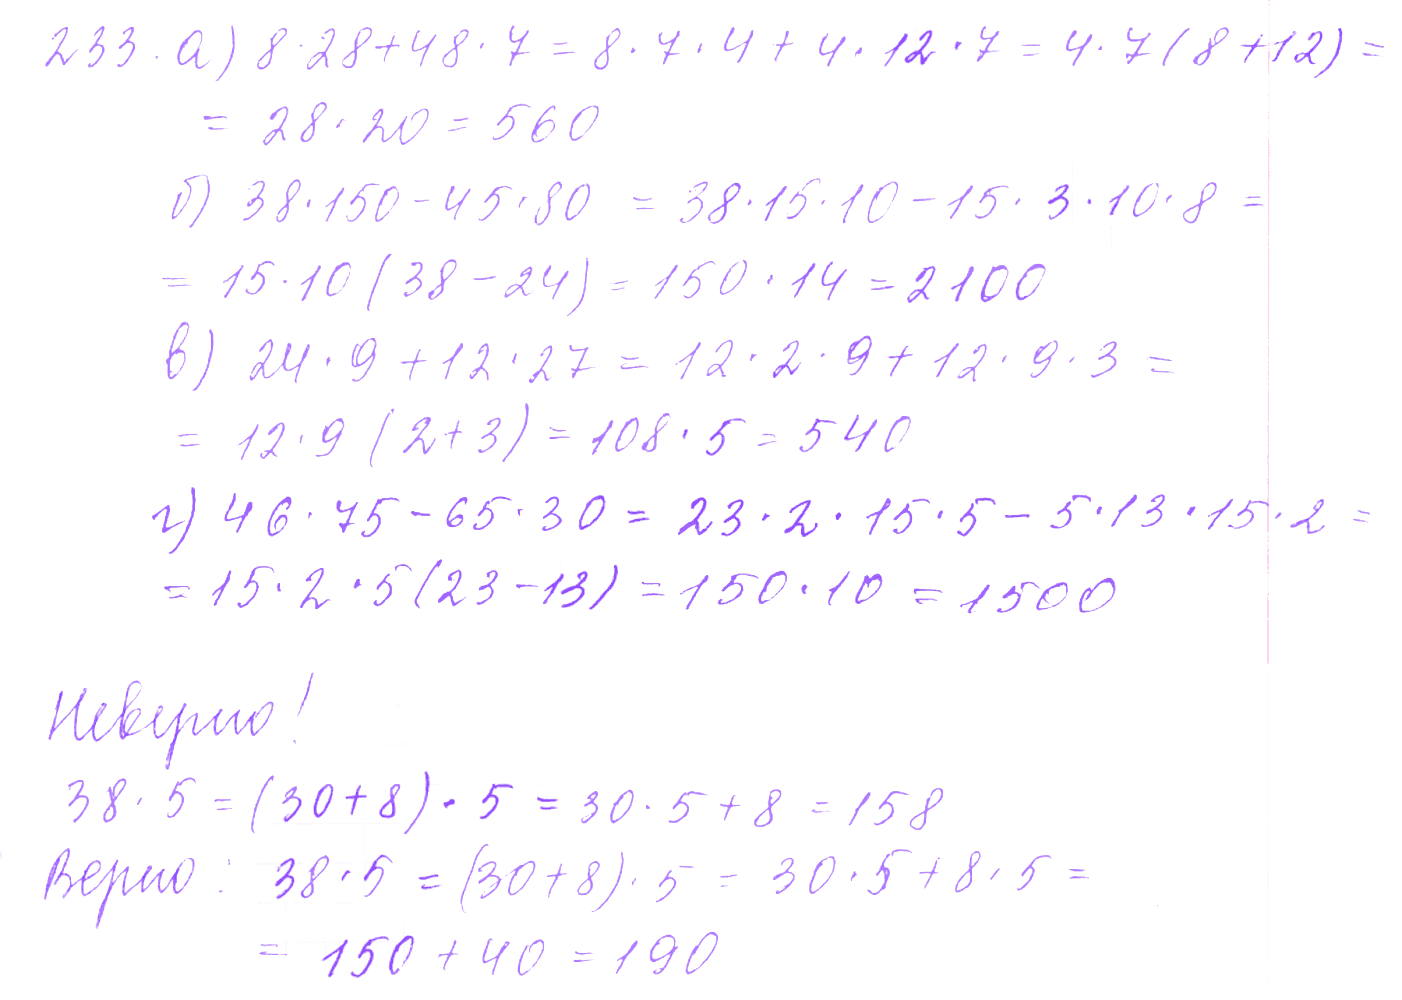 233. а) 8·28+48·7 = 8·7·4 + 4·12·7 = 4·7(8+12) =
= 28·20 = 560
б) 38·150-45·80 = 38·15·10-15·3·10·8 =
= 15·10(38-24) = 150·14 = 2100
в) 24·9+12·27 = 12·2·9+12·9·3 =
= 12·9(2+3) = 108·5 = 540
г) 46·75-65·30 = 23·2·15·5-5·13·15·2 =
= 15·2·5(23-13) = 150·10 = 1500
Неверно!
38·5 = (30+8)·5 = 30·5+8 = 158
Верно: 38·5 = (30+8)·5 = 30·5+8·5 =
= 150+40 = 190